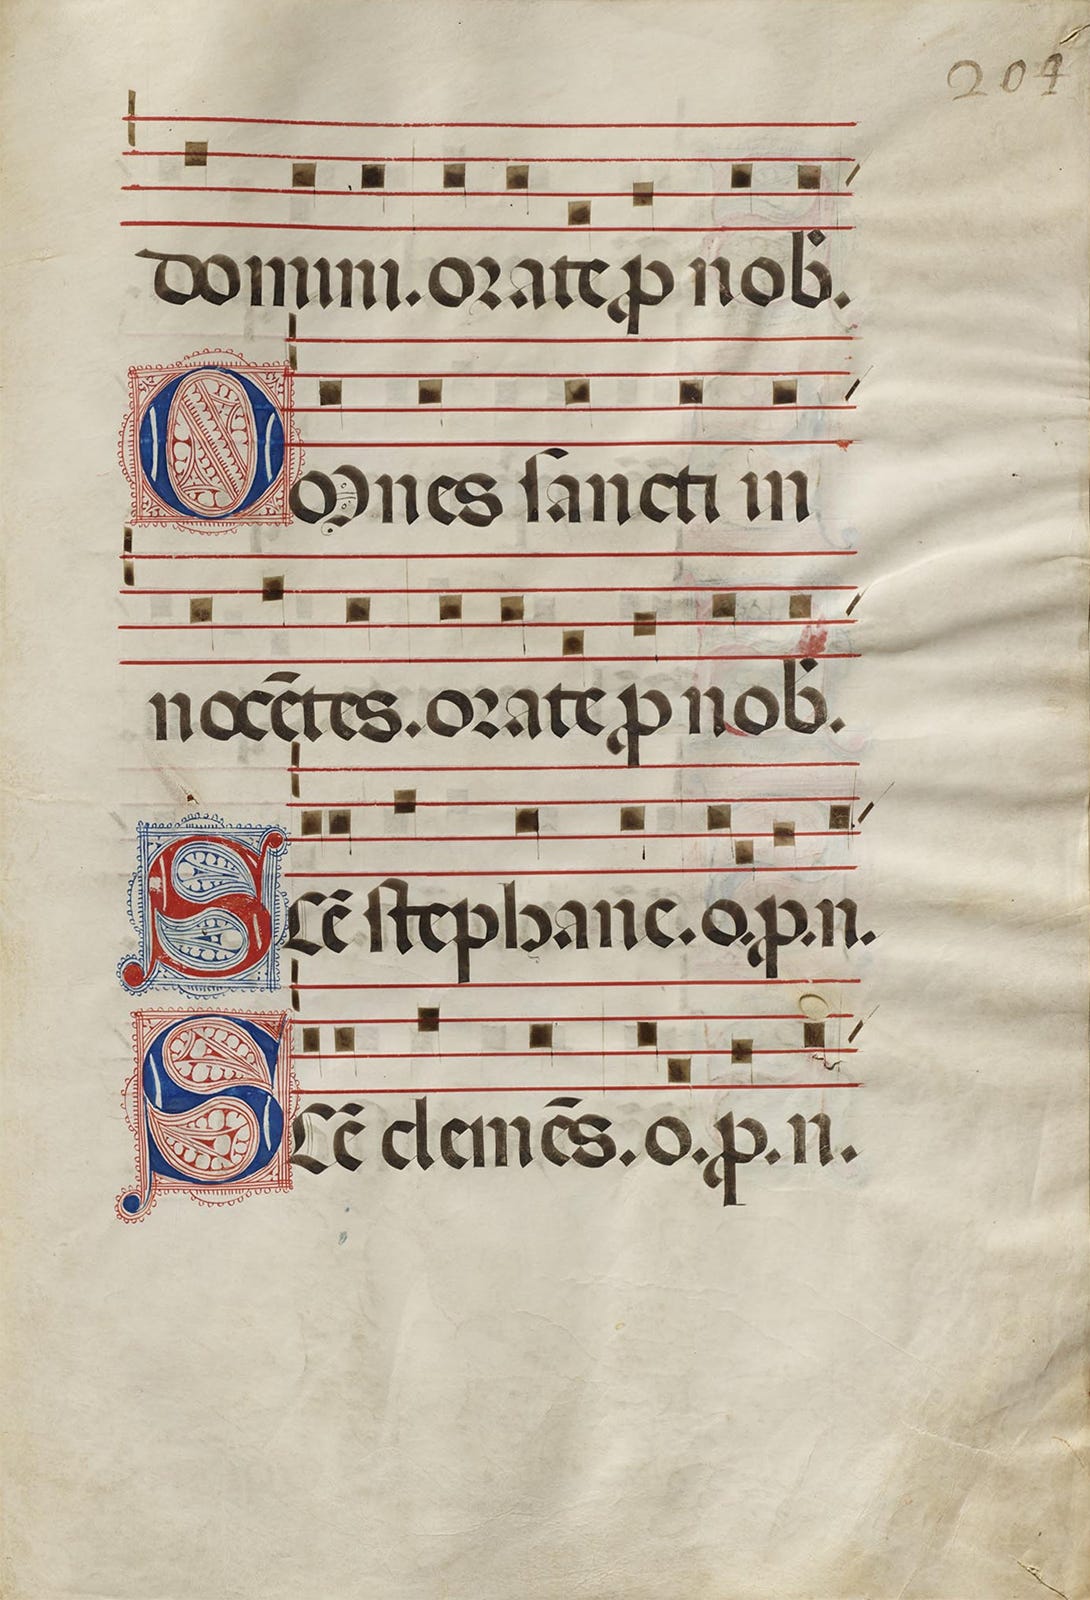 204
domini. orate p nob.
Omnes sancti in
nocētes. orate p nob.
Scē stephane. o. p. n.
Scē clemēs. o. p. n.